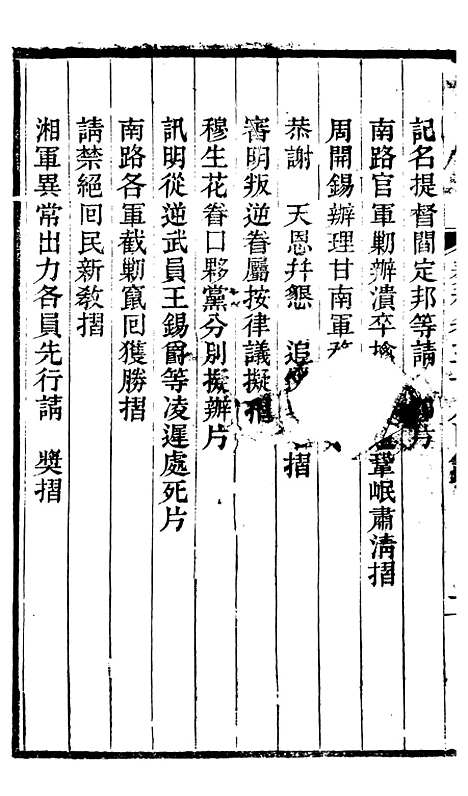 記名提督閻定邦等請 片
南路官軍勦辦潰卒 鞏岷肅清摺
周開錫辦理甘南軍
恭謝 天恩幷懇 追 摺
審明叛逆眷屬按律議擬摺
穆生花眷口夥黨分別擬辦片
訊明從逆武員王錫爵等凌遲處死片
南路各軍截勦竄回獲勝摺
請禁絕回民新敎摺
湘軍異常出力各員先行請 獎摺